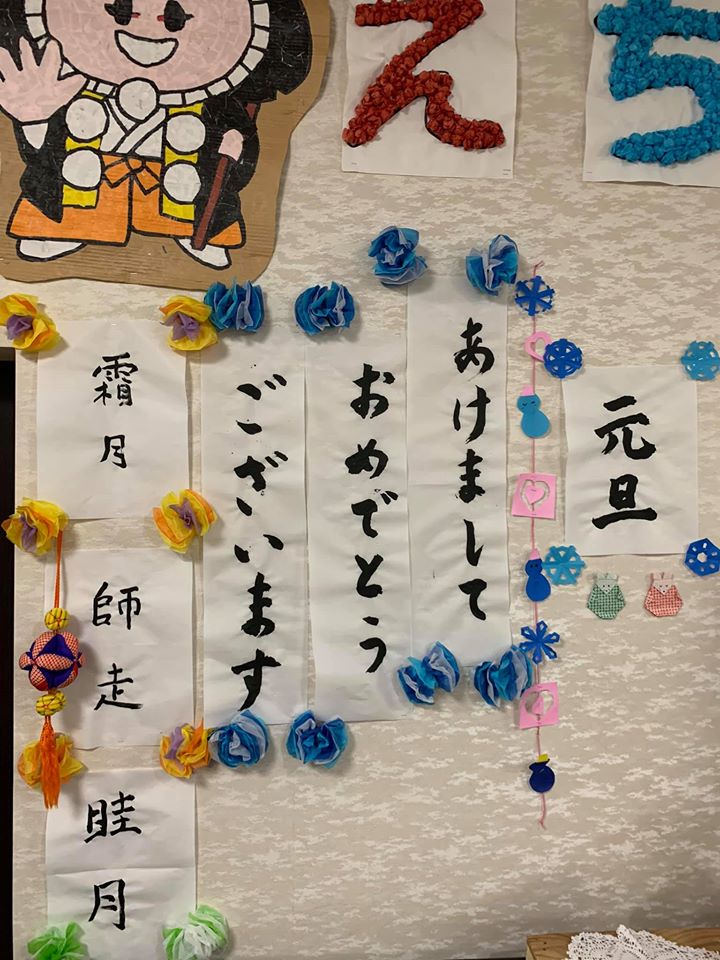 えち
元旦
あけまして
おめでとう
ございます
霜月
師走
眭月